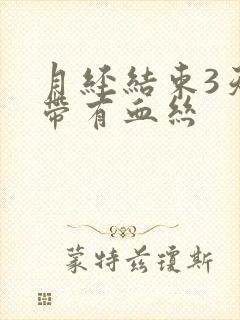 月經結束3天
帶有血絲
蒙特茲瓊斯